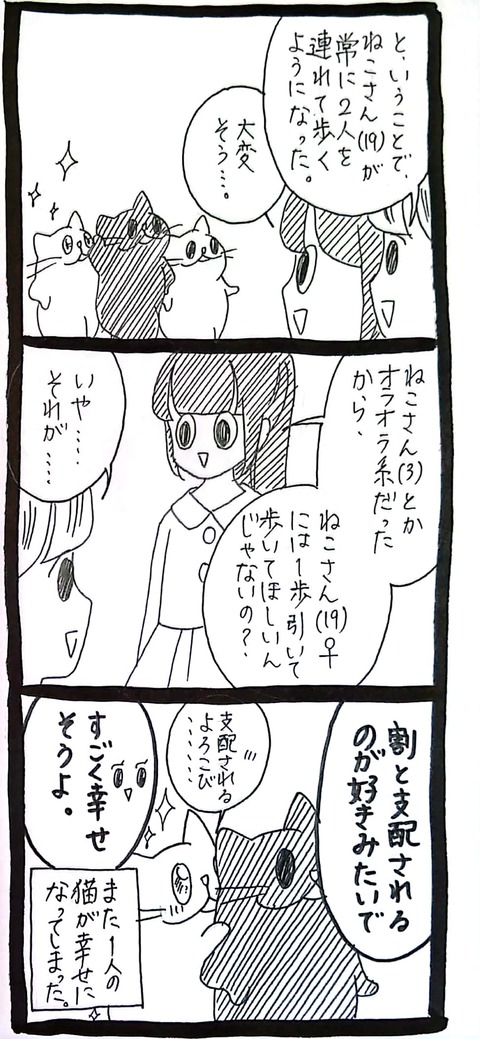 と、いうことで、
ねこさん(19)が
常に2人を
連れて歩く
ようになった。
大変
そう…。
ねこさん(3)とか
オラオラ系だった
から、
ねこさん(19)♀
には1歩引いて
歩いてほしいん
じゃないの?
いや……
それが……
割と支配される
のが好きみたいで
支配される
よろこび
……
すごく幸せ
そうよ。
また1人の
猫が幸せに
なってしまった。